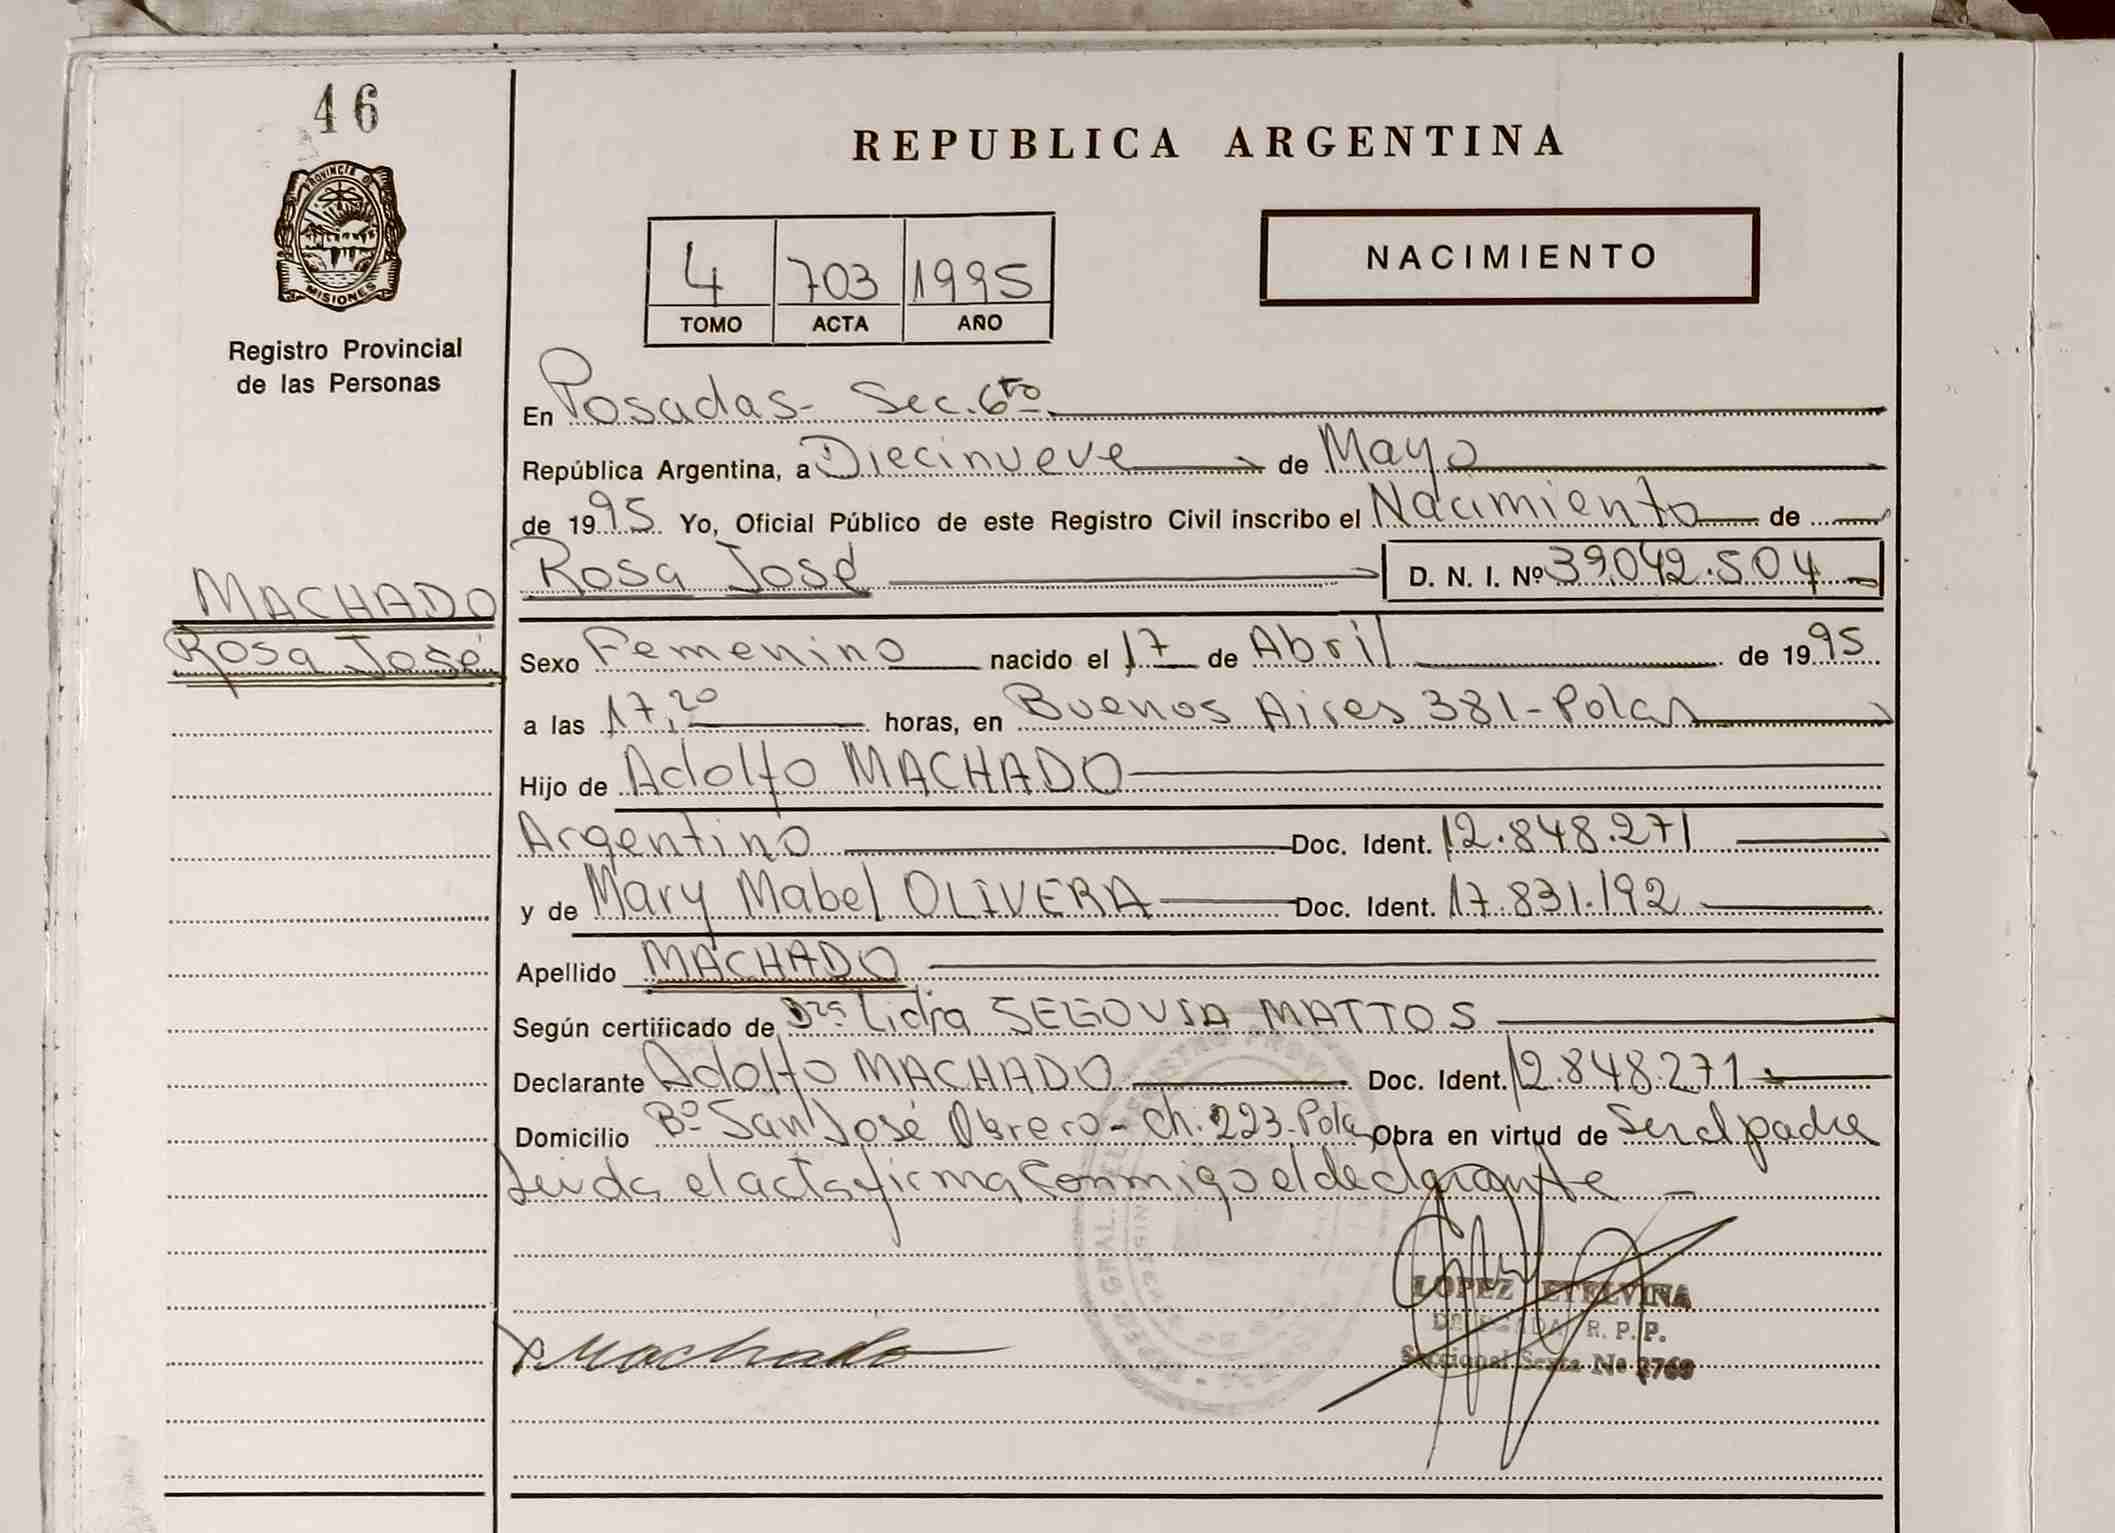 46
REPUBLICA ARGENTINA
PROVINCIA DE
MISIONES
Registro Provincial
de las Personas
4 703 1995
TOMO ACTA AÑO
NACIMIENTO
En Posadas - Sec. 6to
República Argentina, a Diecinueve de Mayo
de 1995. Yo, Oficial Público de este Registro Civil inscribo el Nacimiento de
Rosa José D. N. I. Nº 39.042.504
MACHADO
Rosa José
Sexo Femenino nacido el 17 de Abril de 1995
a las 17,20 horas, en Buenos Aires 381 - Pdas
Hijo de Adolfo MACHADO
Argentino Doc. Ident. 12.848.271
y de Mary Mabel OLIVERA Doc. Ident. 17.831.192
Apellido MACHADO
Según certificado de Dra. Lidia SEGOVIA MATTOS
Declarante Adolfo MACHADO Doc. Ident. 12.848.271
Domicilio Bº San José Obrero - Ch. 223 - Pdas Obra en virtud de Ser el padre
Leida el acta firma Conmigo el declarante
LOPEZ ETELVINA
DELEGADA R. P. P.
Seccional Sexta No 2760
Machado